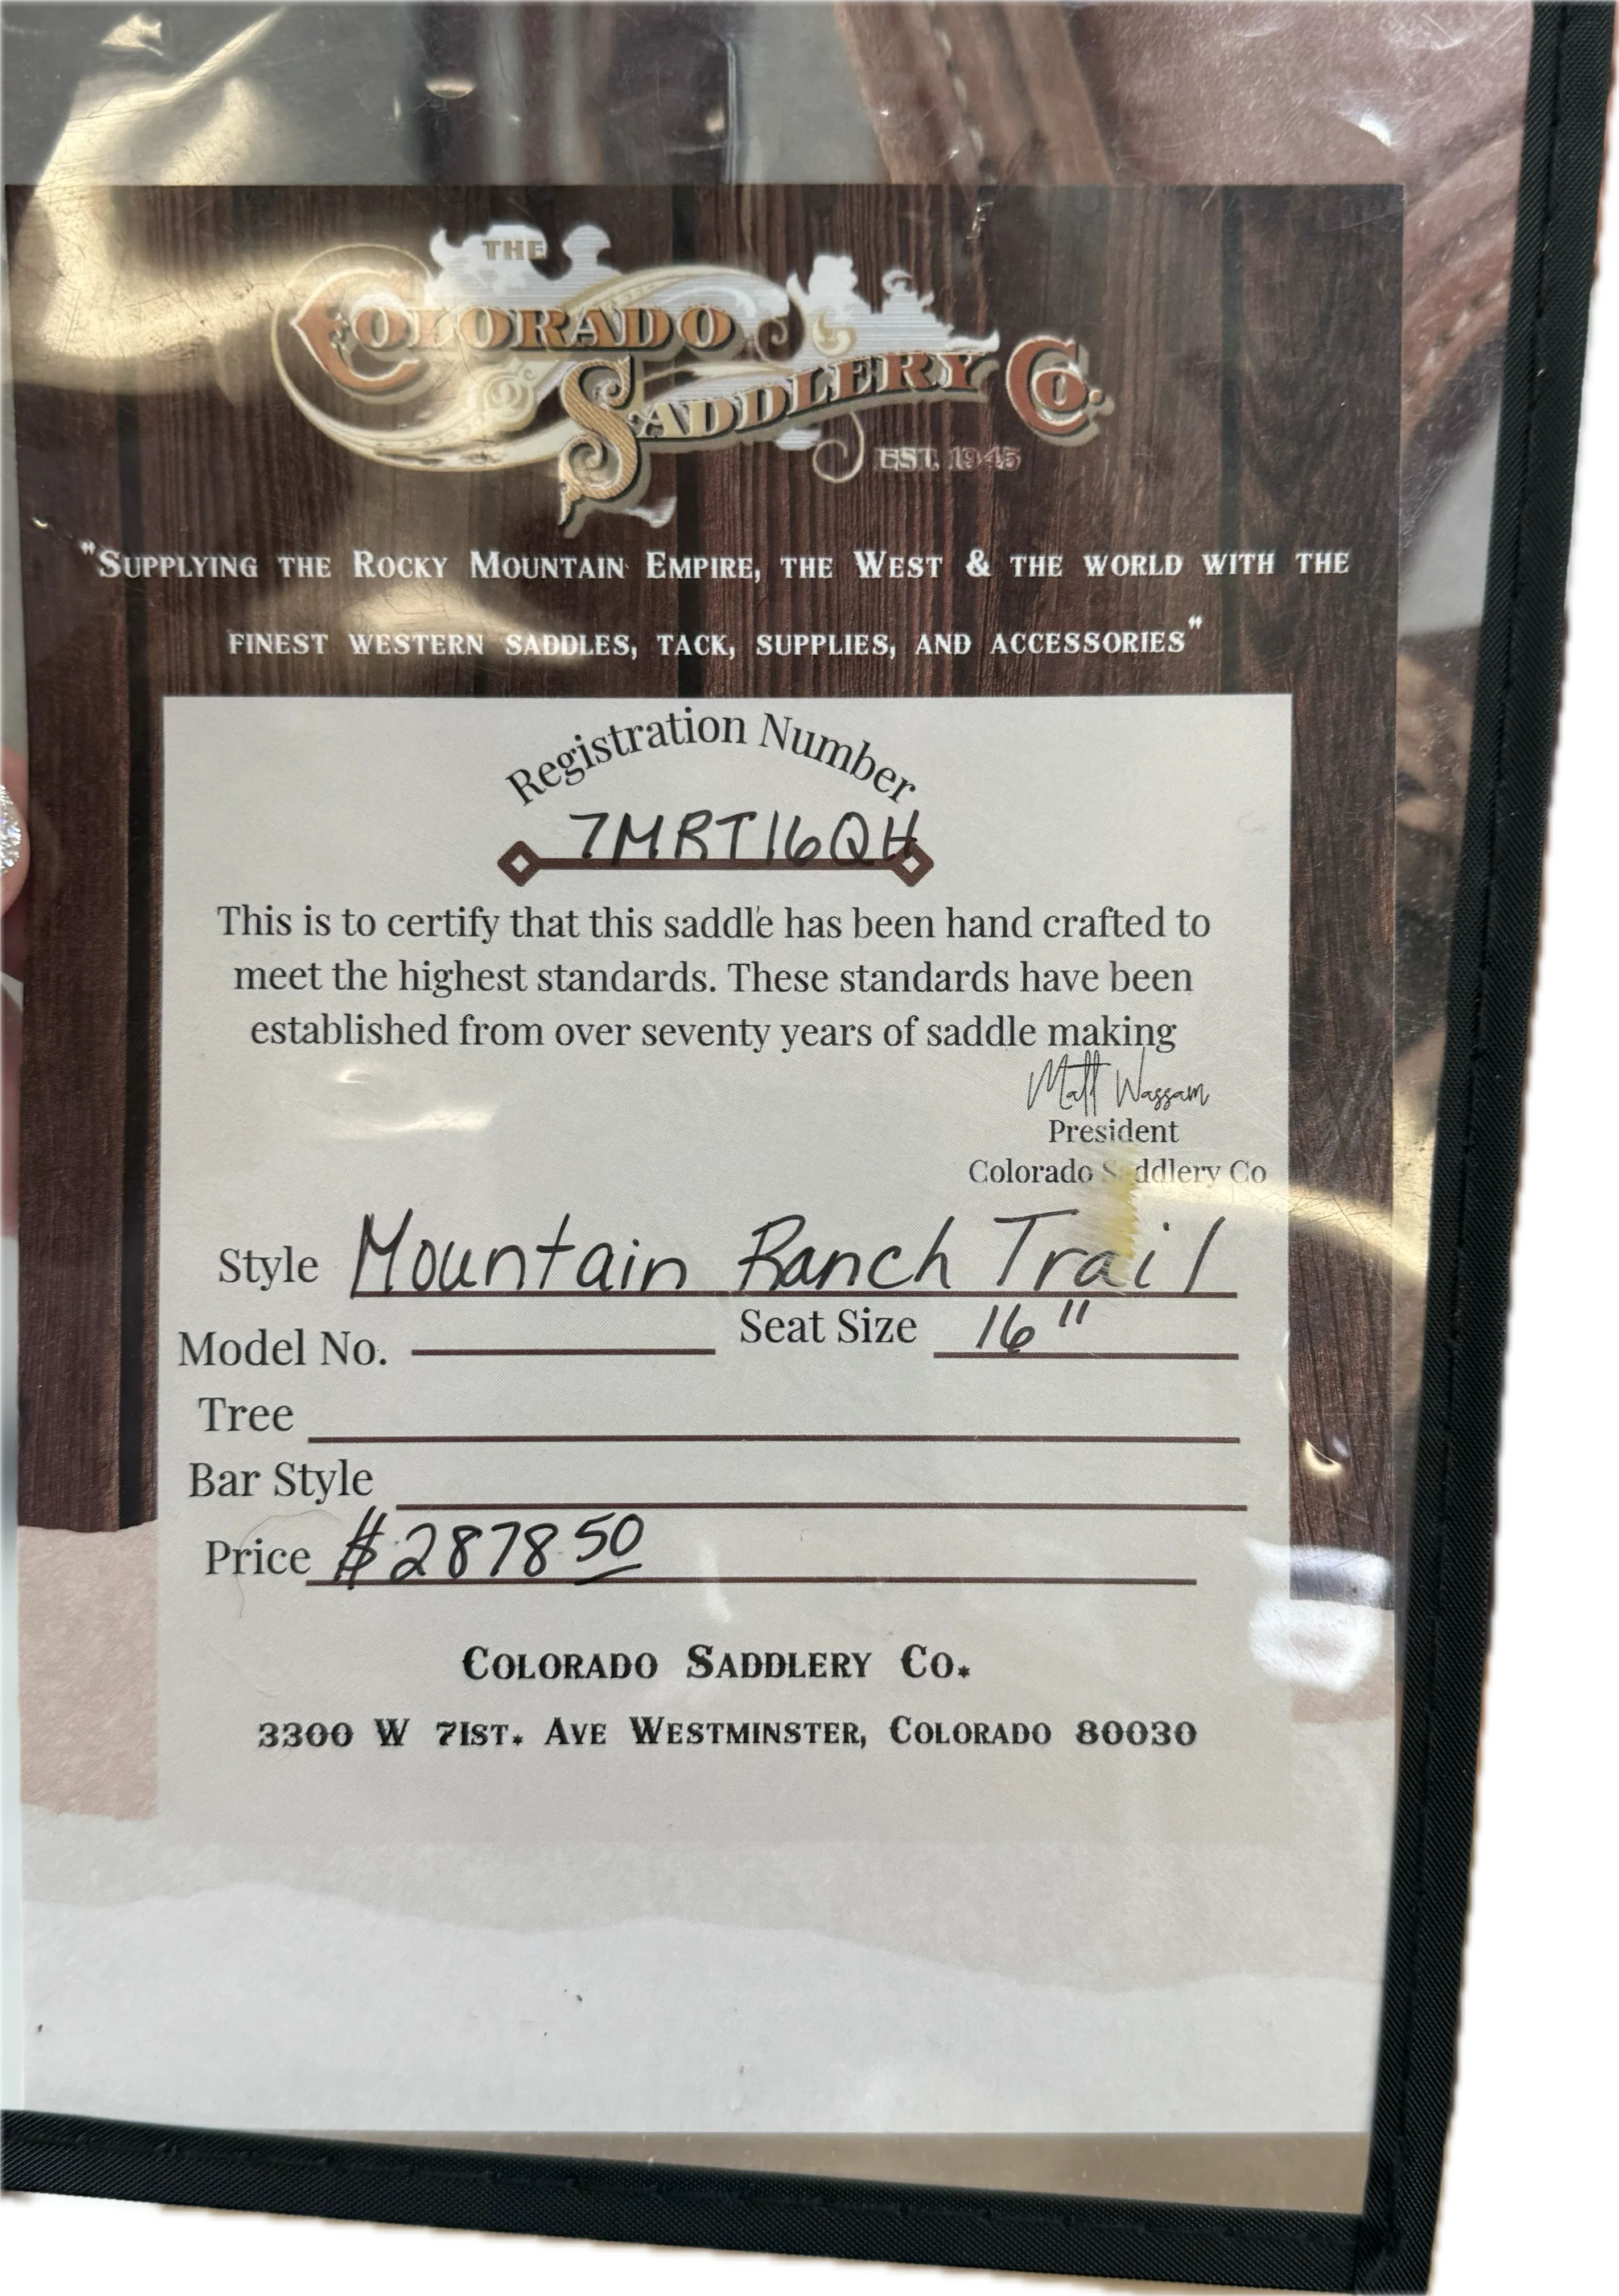 THE
COLORADO
SADDLERY CO.
EST. 1945
"SUPPLYING THE ROCKY MOUNTAIN EMPIRE, THE WEST & THE WORLD WITH THE
FINEST WESTERN SADDLES, TACK, SUPPLIES, AND ACCESSORIES"
Registration Number
7MRT16QH
This is to certify that this saddle has been hand crafted to
meet the highest standards. These standards have been
established from over seventy years of saddle making
Matt Wassam
President
Colorado Saddlery Co
Style Mountain Ranch Trail
Model No. Seat Size 16"
Tree
Bar Style
Price $2878 50
COLORADO SADDLERY CO.
3300 W 71ST. AVE WESTMINSTER, COLORADO 80030